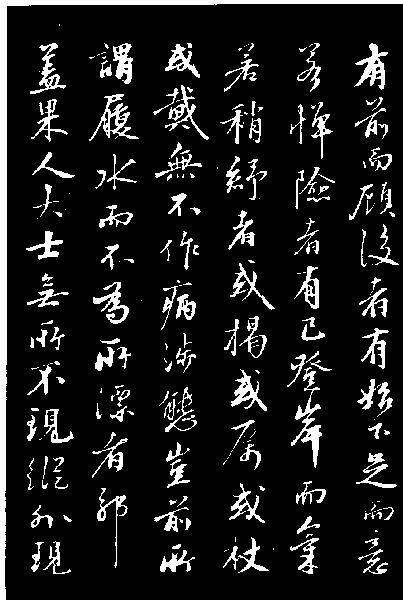 有前而顧後者有始下足而意
若憚險者有已登岸而氣
若稍紓者或揭或厲或杖
或戴無不作病涉態豈前所
謂履水而不為所漂者耶
蓋果人大士無所不現縱外現